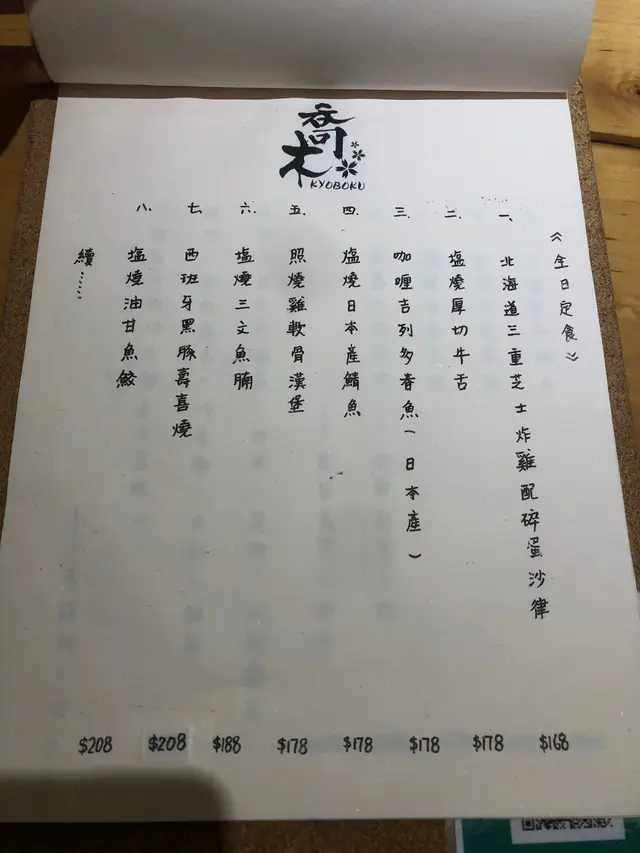 喬木
KYOBOKU
《全日定食》
一、北海道三重芝士炸雞配碎蛋沙律 $168
二、塩燒厚切牛舌 $178
三、咖喱吉列多春魚(日本產) $178
四、塩燒日本產鯖魚 $178
五、照燒雞軟骨漢堡 $178
六、塩燒三文魚腩 $188
七、西班牙黑豚壽喜燒 $208
八、塩燒油甘魚鮫 $208
續……